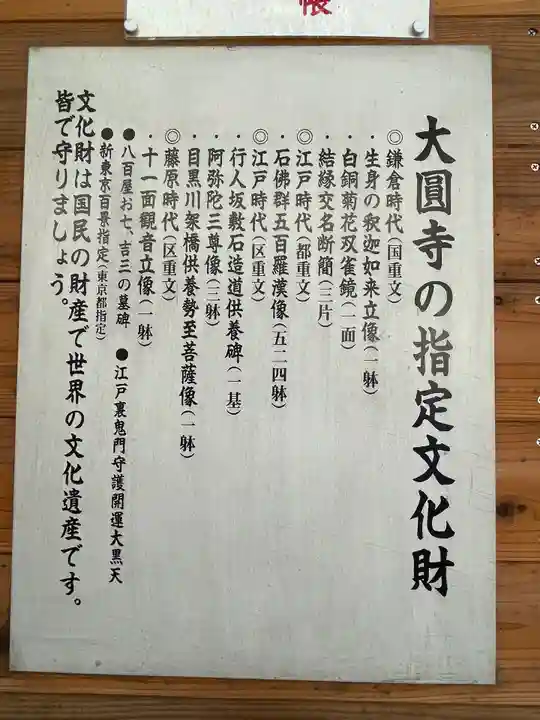 帳
大圓寺の指定文化財
◎鎌倉時代(国重文)
・生身の釈迦如来立像(一躰)
・白銅菊花双雀鏡(一面)
・結縁交名断簡(三片)
◎江戸時代(都重文)
・石佛群五百羅漢像(五二四躰)
◎江戸時代(区重文)
・行人坂敷石造道供養碑(一基)
・阿弥陀三尊像(三躰)
・目黒川架橋供養勢至菩薩像(一躰)
◎藤原時代(区重文)
・十一面観音立像(一躰)
●八百屋お七、吉三の墓碑
●江戸裏鬼門守護開運大黒天
●新東京百景指定(東京都指定)
文化財は国民の財産で世界の文化遺産です。
皆で守りましょう。